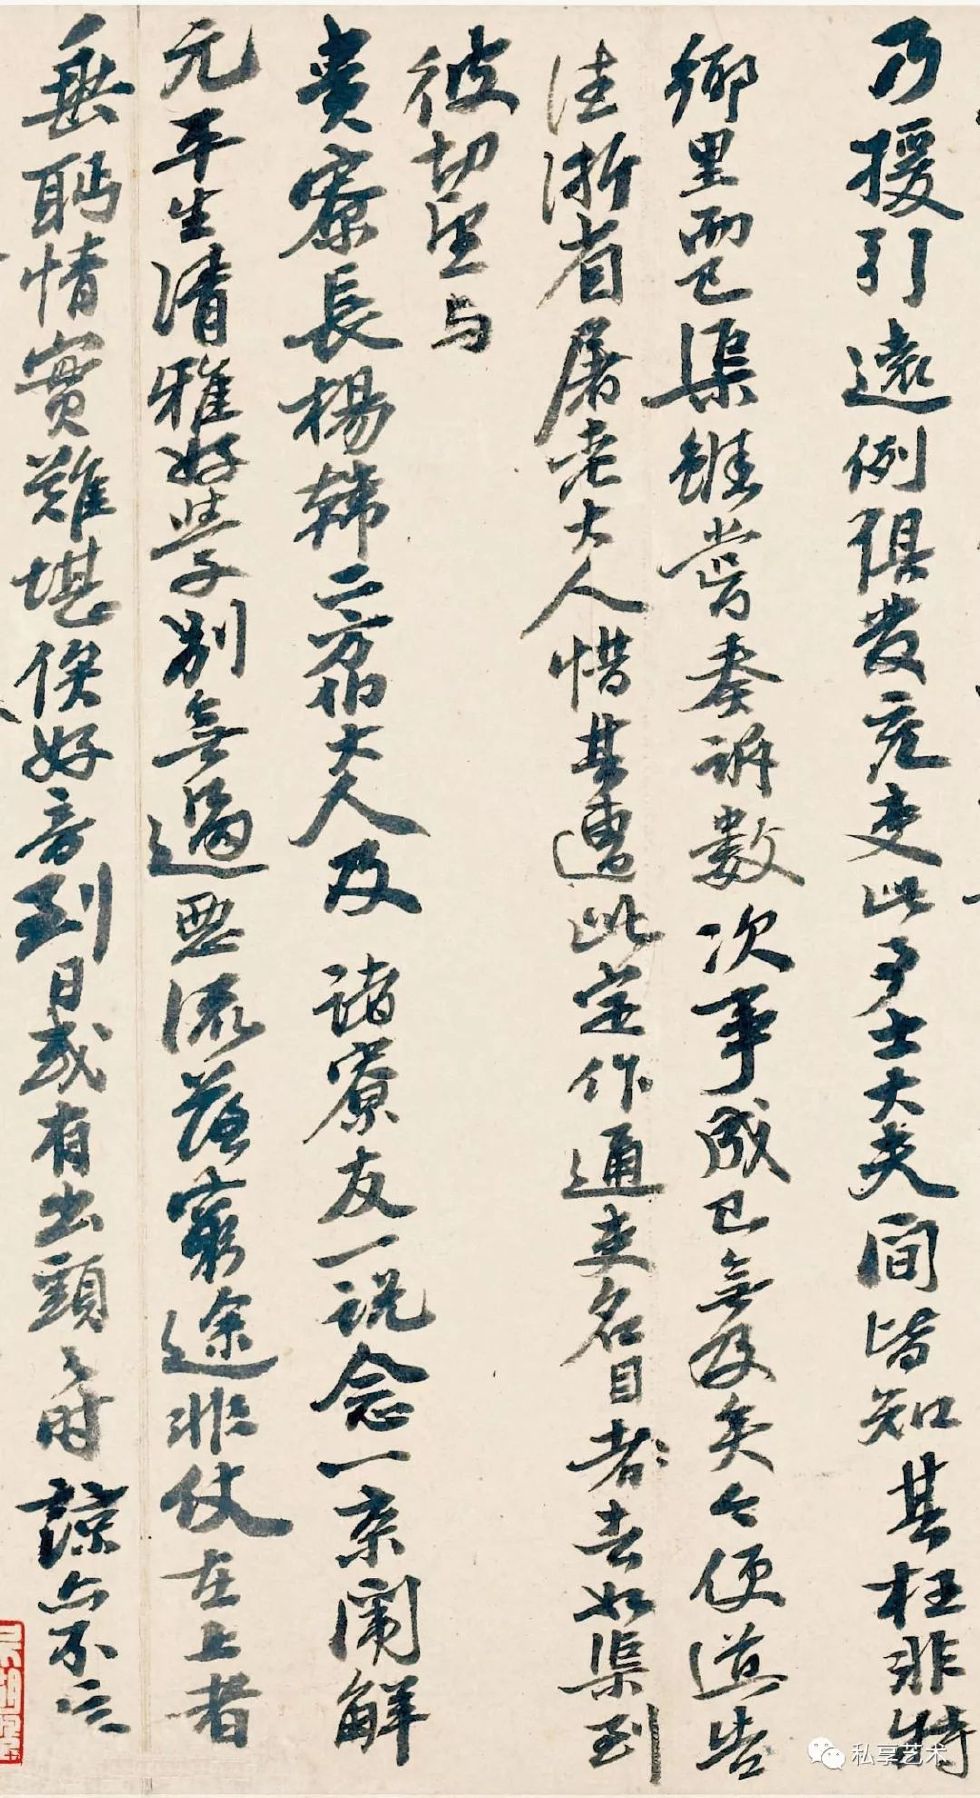 乃援引遠例俱發充吏此事士大夫間皆知其枉非特
鄉里而已渠雖嘗奏訴數次事成已無及矣今便道告
往浙省屠老大人惜其遭此定作通吏名目者去如渠到
彼切望与
貴寮長楊韓二方伯大人及諸寮友一説念一京闈解
元平生清雅好學別無過惡流落窮途非仗在上者
垂眄情實難堪俟好音到日或有出頭之時諒亦不忘
私享艺术